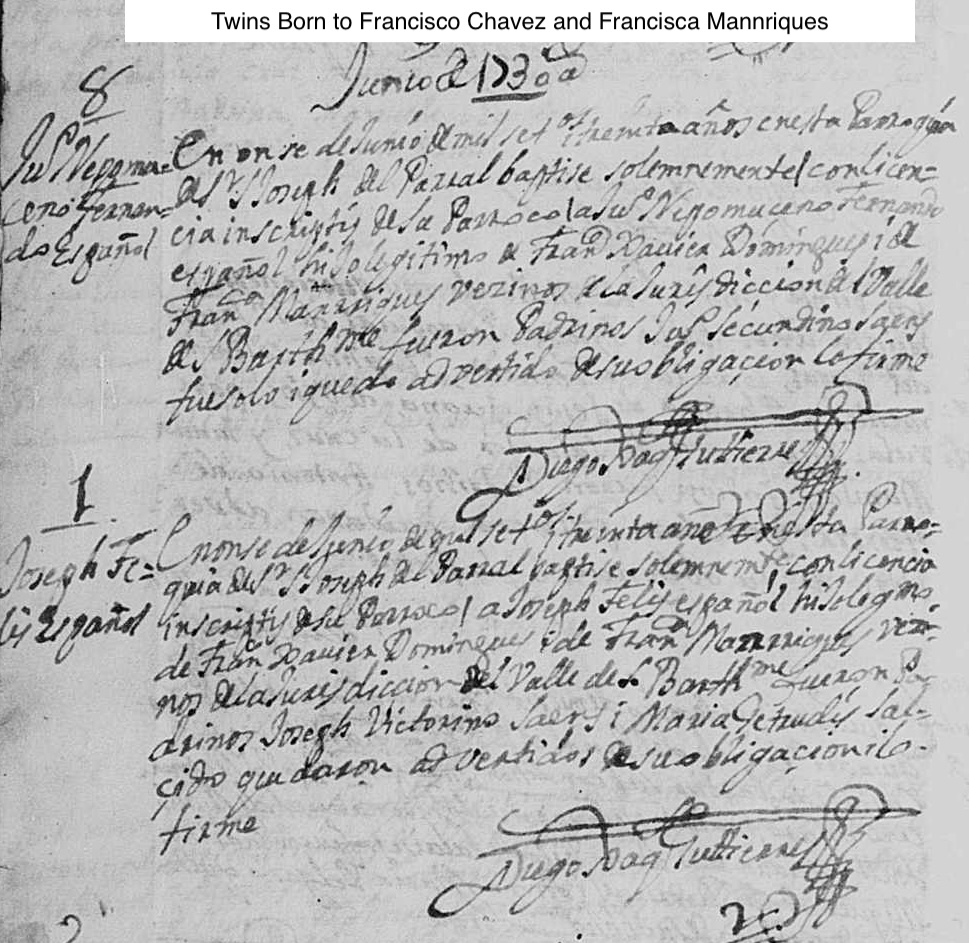 Twins Born to Francisco Chavez and Francisca Mannriques
Junio de 1730 a
8
Jus Nepoma=
ceno Fernan=
do Español
En onse de Junio de mil set os treinta años en esta Parroquia
de Sr S Joseph del Parral baptise solemnemente / con licen=
cia inscriptis de su Parroco / a Jus Nepomuceno Fernando
español hijo legitimo de Fran co Xavier Domingues i de
Fran ca Mañrriques vezinos de la Jurisdiccion del Valle
de S Barth me fueron Padrinos Jus Secundino Saens
fue solo i quedo advertido de su obligaçion lo firme
Diego Gutierres
1
Joseph Fe=
lis Español
En onse de Junio de mil set os treinta años en esta Parro=
quia de Sr S Joseph del Parral baptise solemnem te con licencia
inscriptis de su Parroco / a Joseph Felis español hijo leg mo
de Fran co Xavier Domingues i de Fran ca Manrriques vezi=
nos de la Jurisdiccion del Valle de S Barth me fueron Pa=
drinos Joseph Victorino Saens i Maria Getrudis Sal=
çido quedaron advertidos de su obligaçion i lo
firme
Diego Guttierres
2